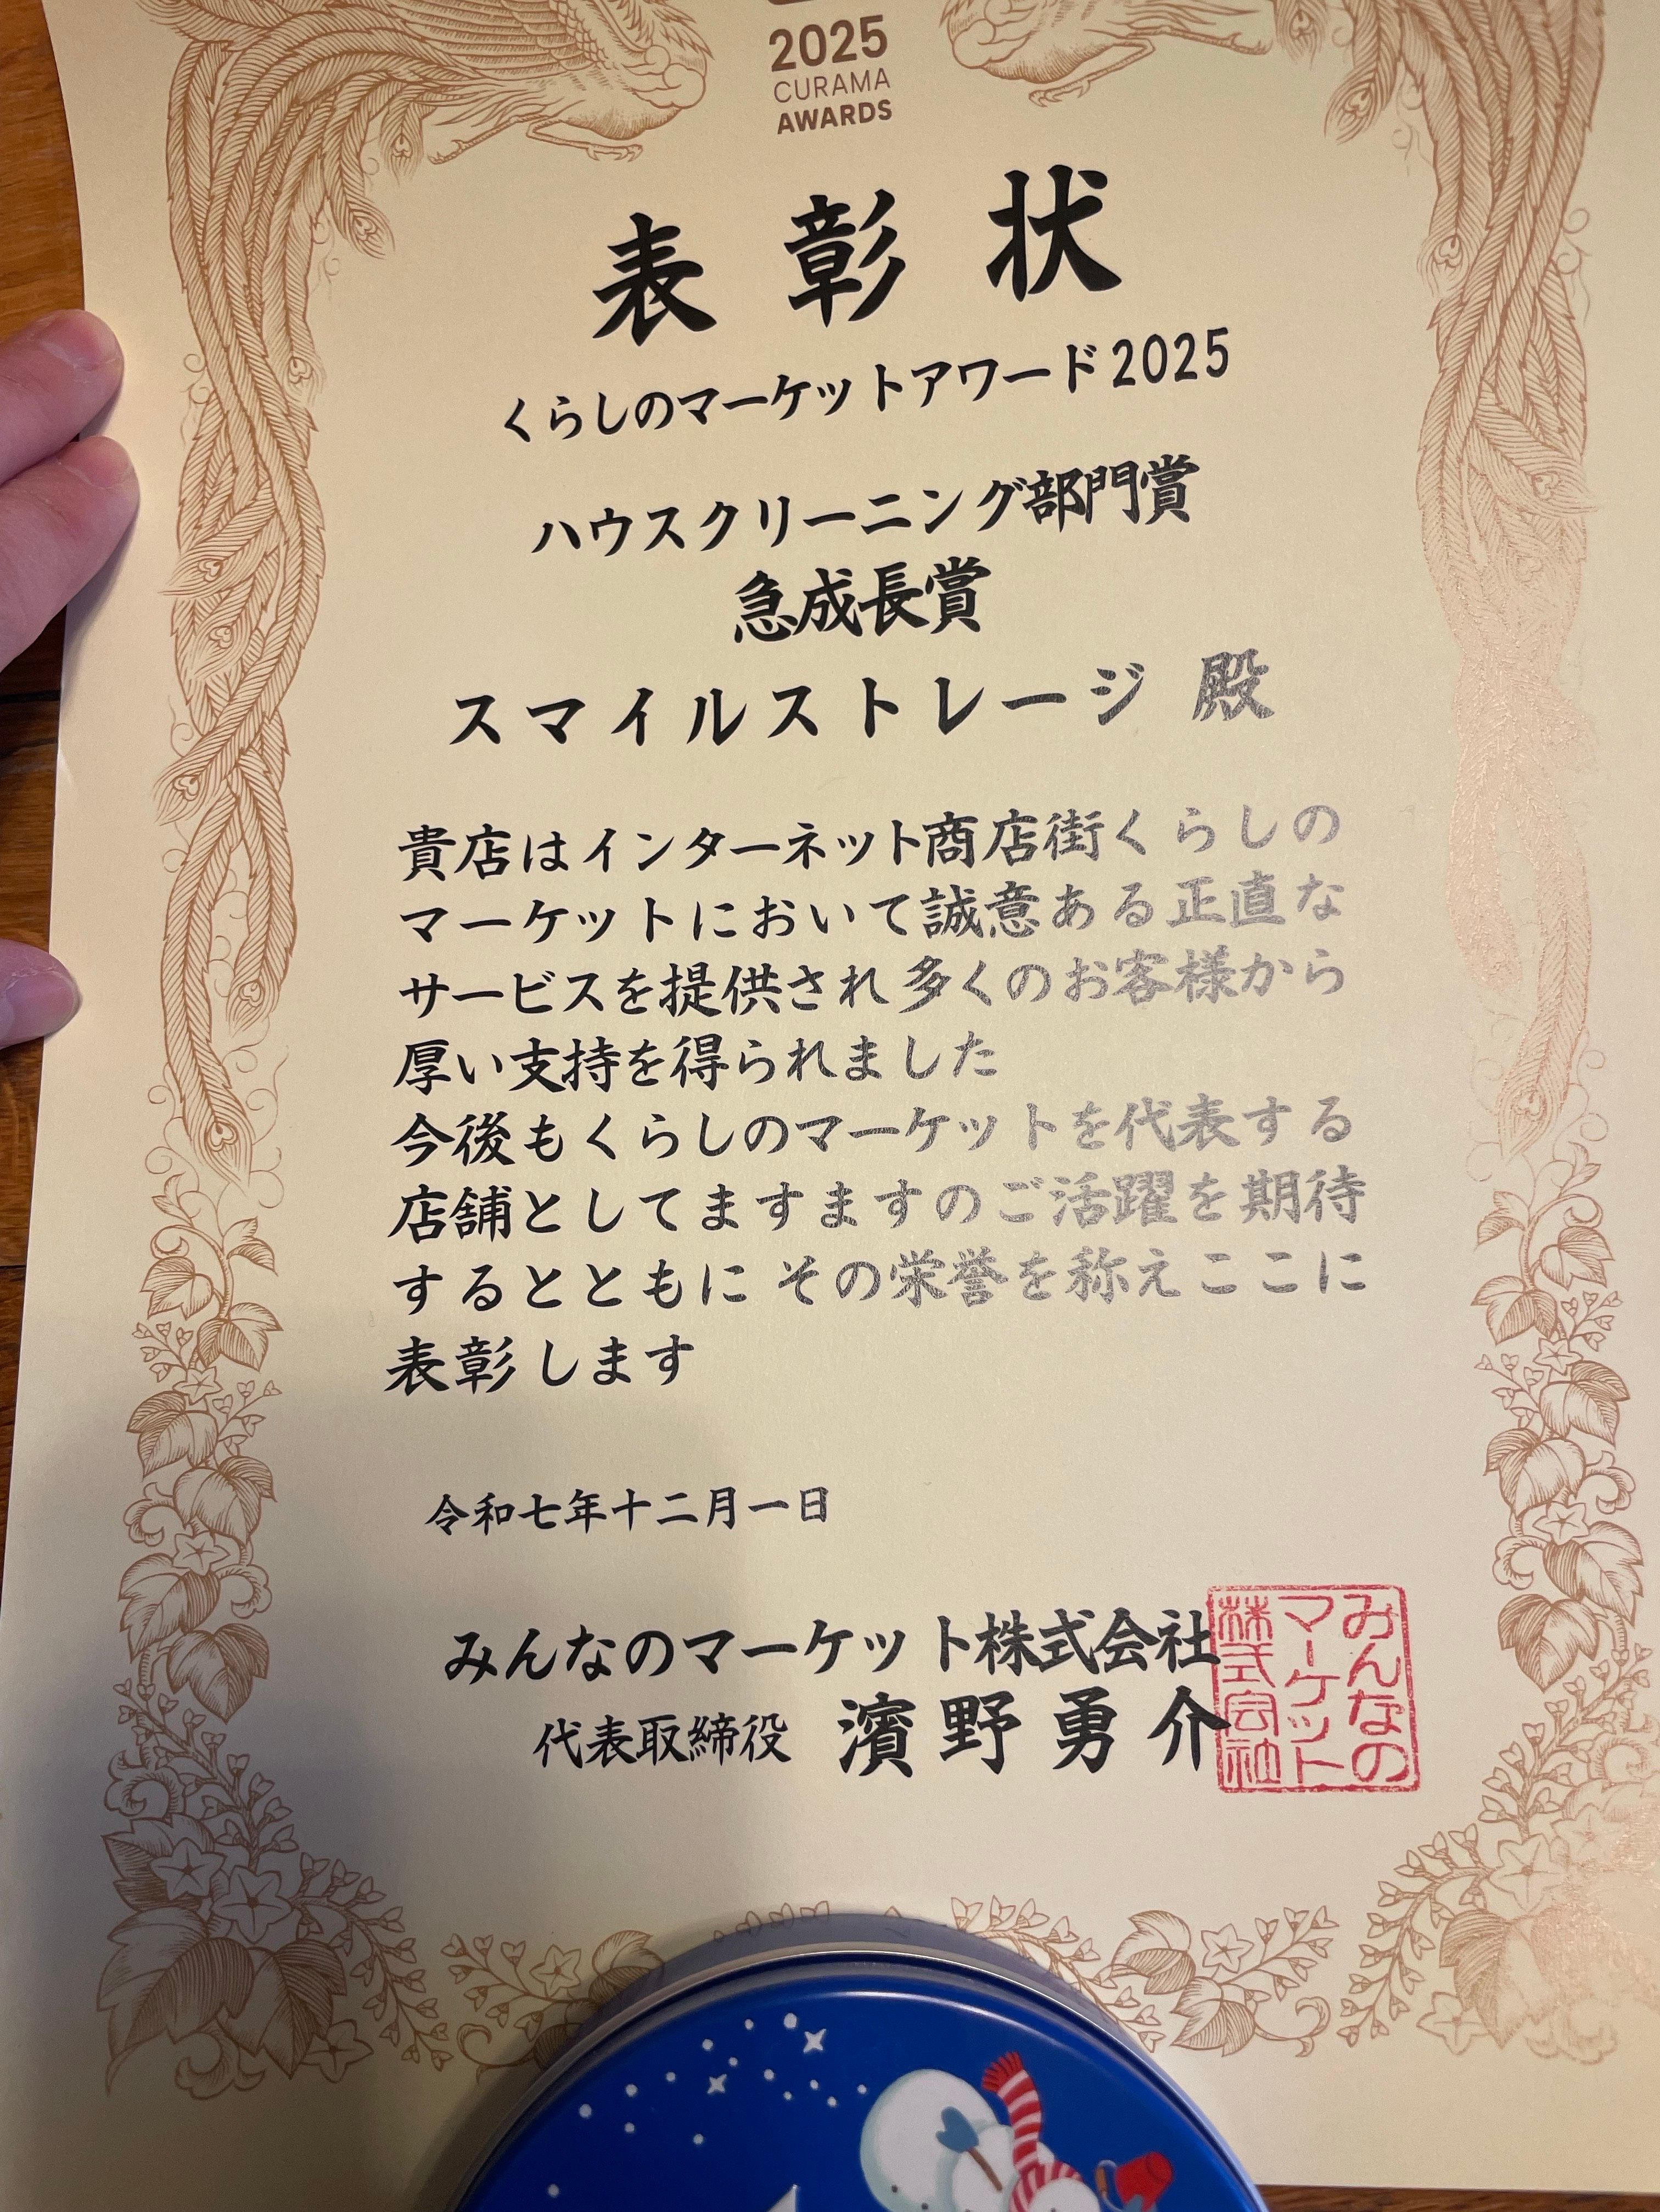 2025
CURAMA
AWARDS
表彰状
くらしのマーケットアワード2025
ハウスクリーニング部門賞
急成長賞
スマイルストレージ 殿
貴店はインターネット商店街くらしの
マーケットにおいて誠意ある正直な
サービスを提供され多くのお客様から
厚い支持を得られました
今後もくらしのマーケットを代表する
店舗としてますますのご活躍を期待
するとともに その栄誉を称えここに
表彰します
令和七年十二月一日
みんなのマーケット株式会社
代表取締役 濱野勇介
みんなの
マーケット
株式会社